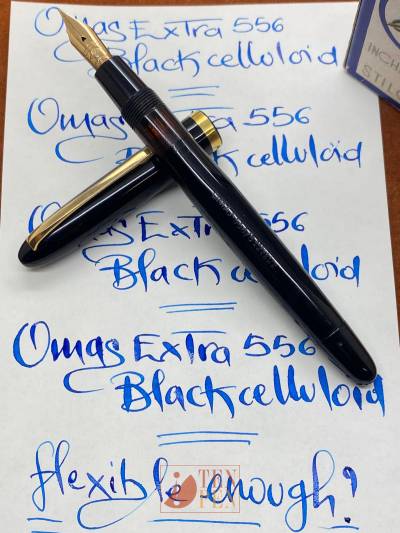 Omas Extra 556
Black celluloid
Omas Extra 556
Black celluloid
Omas Extra 556
Black celluloid
Omas Extra 556
Black celluloid
flexible enough?
TEN
PEN
INCH
STILO